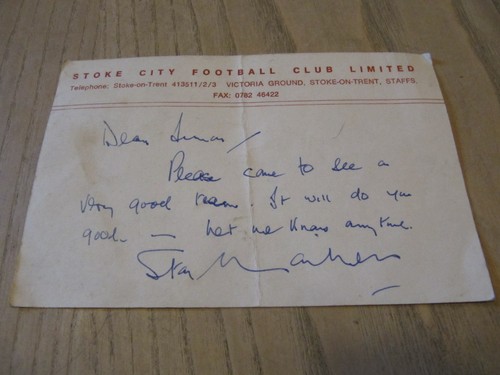 STOKE CITY FOOTBALL CLUB LIMITED
Telephone: Stoke-on-Trent 413511/2/3 VICTORIA GROUND, STOKE-ON-TRENT, STAFFS.
FAX: 0782 46422
Dear
Please come to see a
very good team. It will do you
good. — Let me know anytime.
Stan